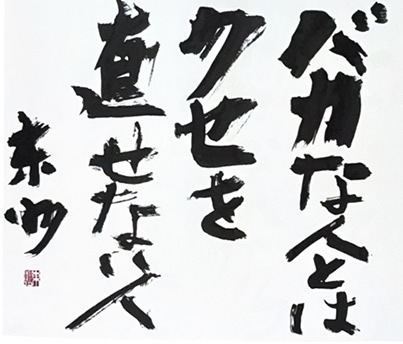 バカな人とは
クセを
直せない人
東州